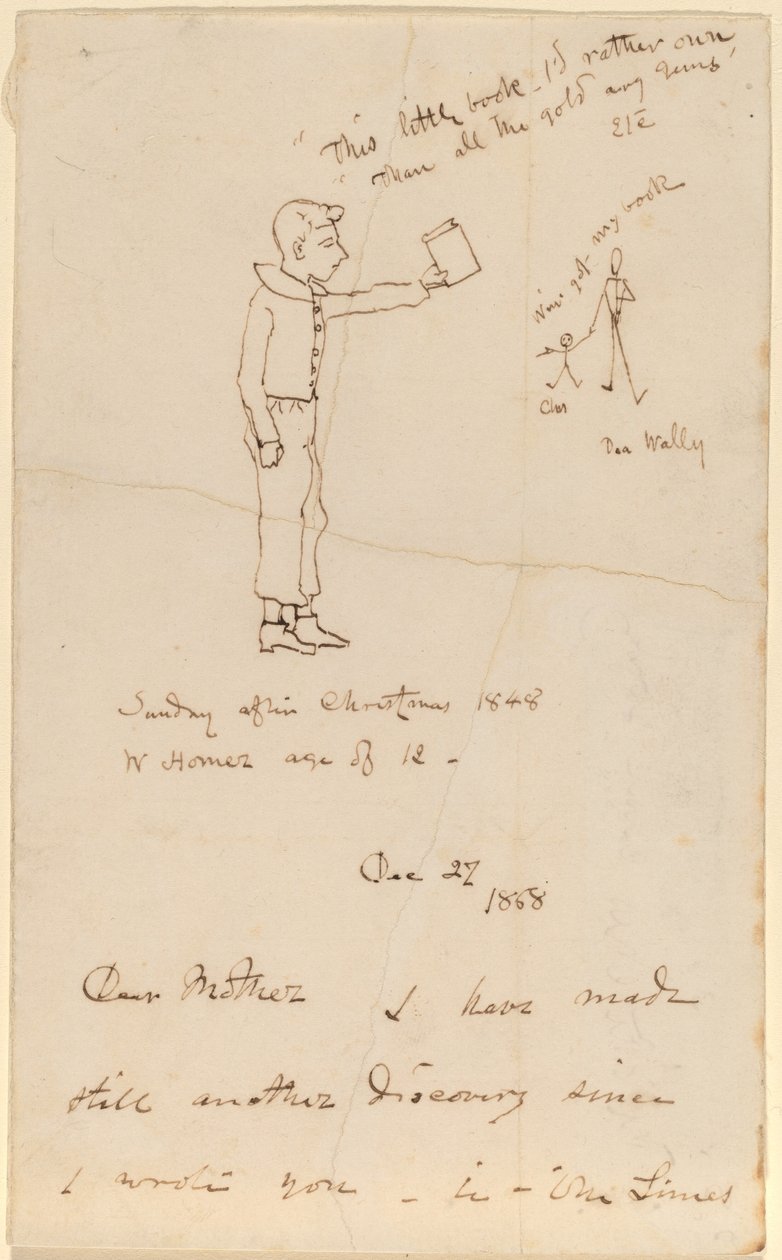 "This little book - I'd rather own
"Than all the gold any gems,
Etc
my book
Chas
Wally
Sunday after Christmas 1848
W Homer age of 12 -
Dec 27
1868
Dear Mother I have made
still another discovery since
I wrote you - in - the Times